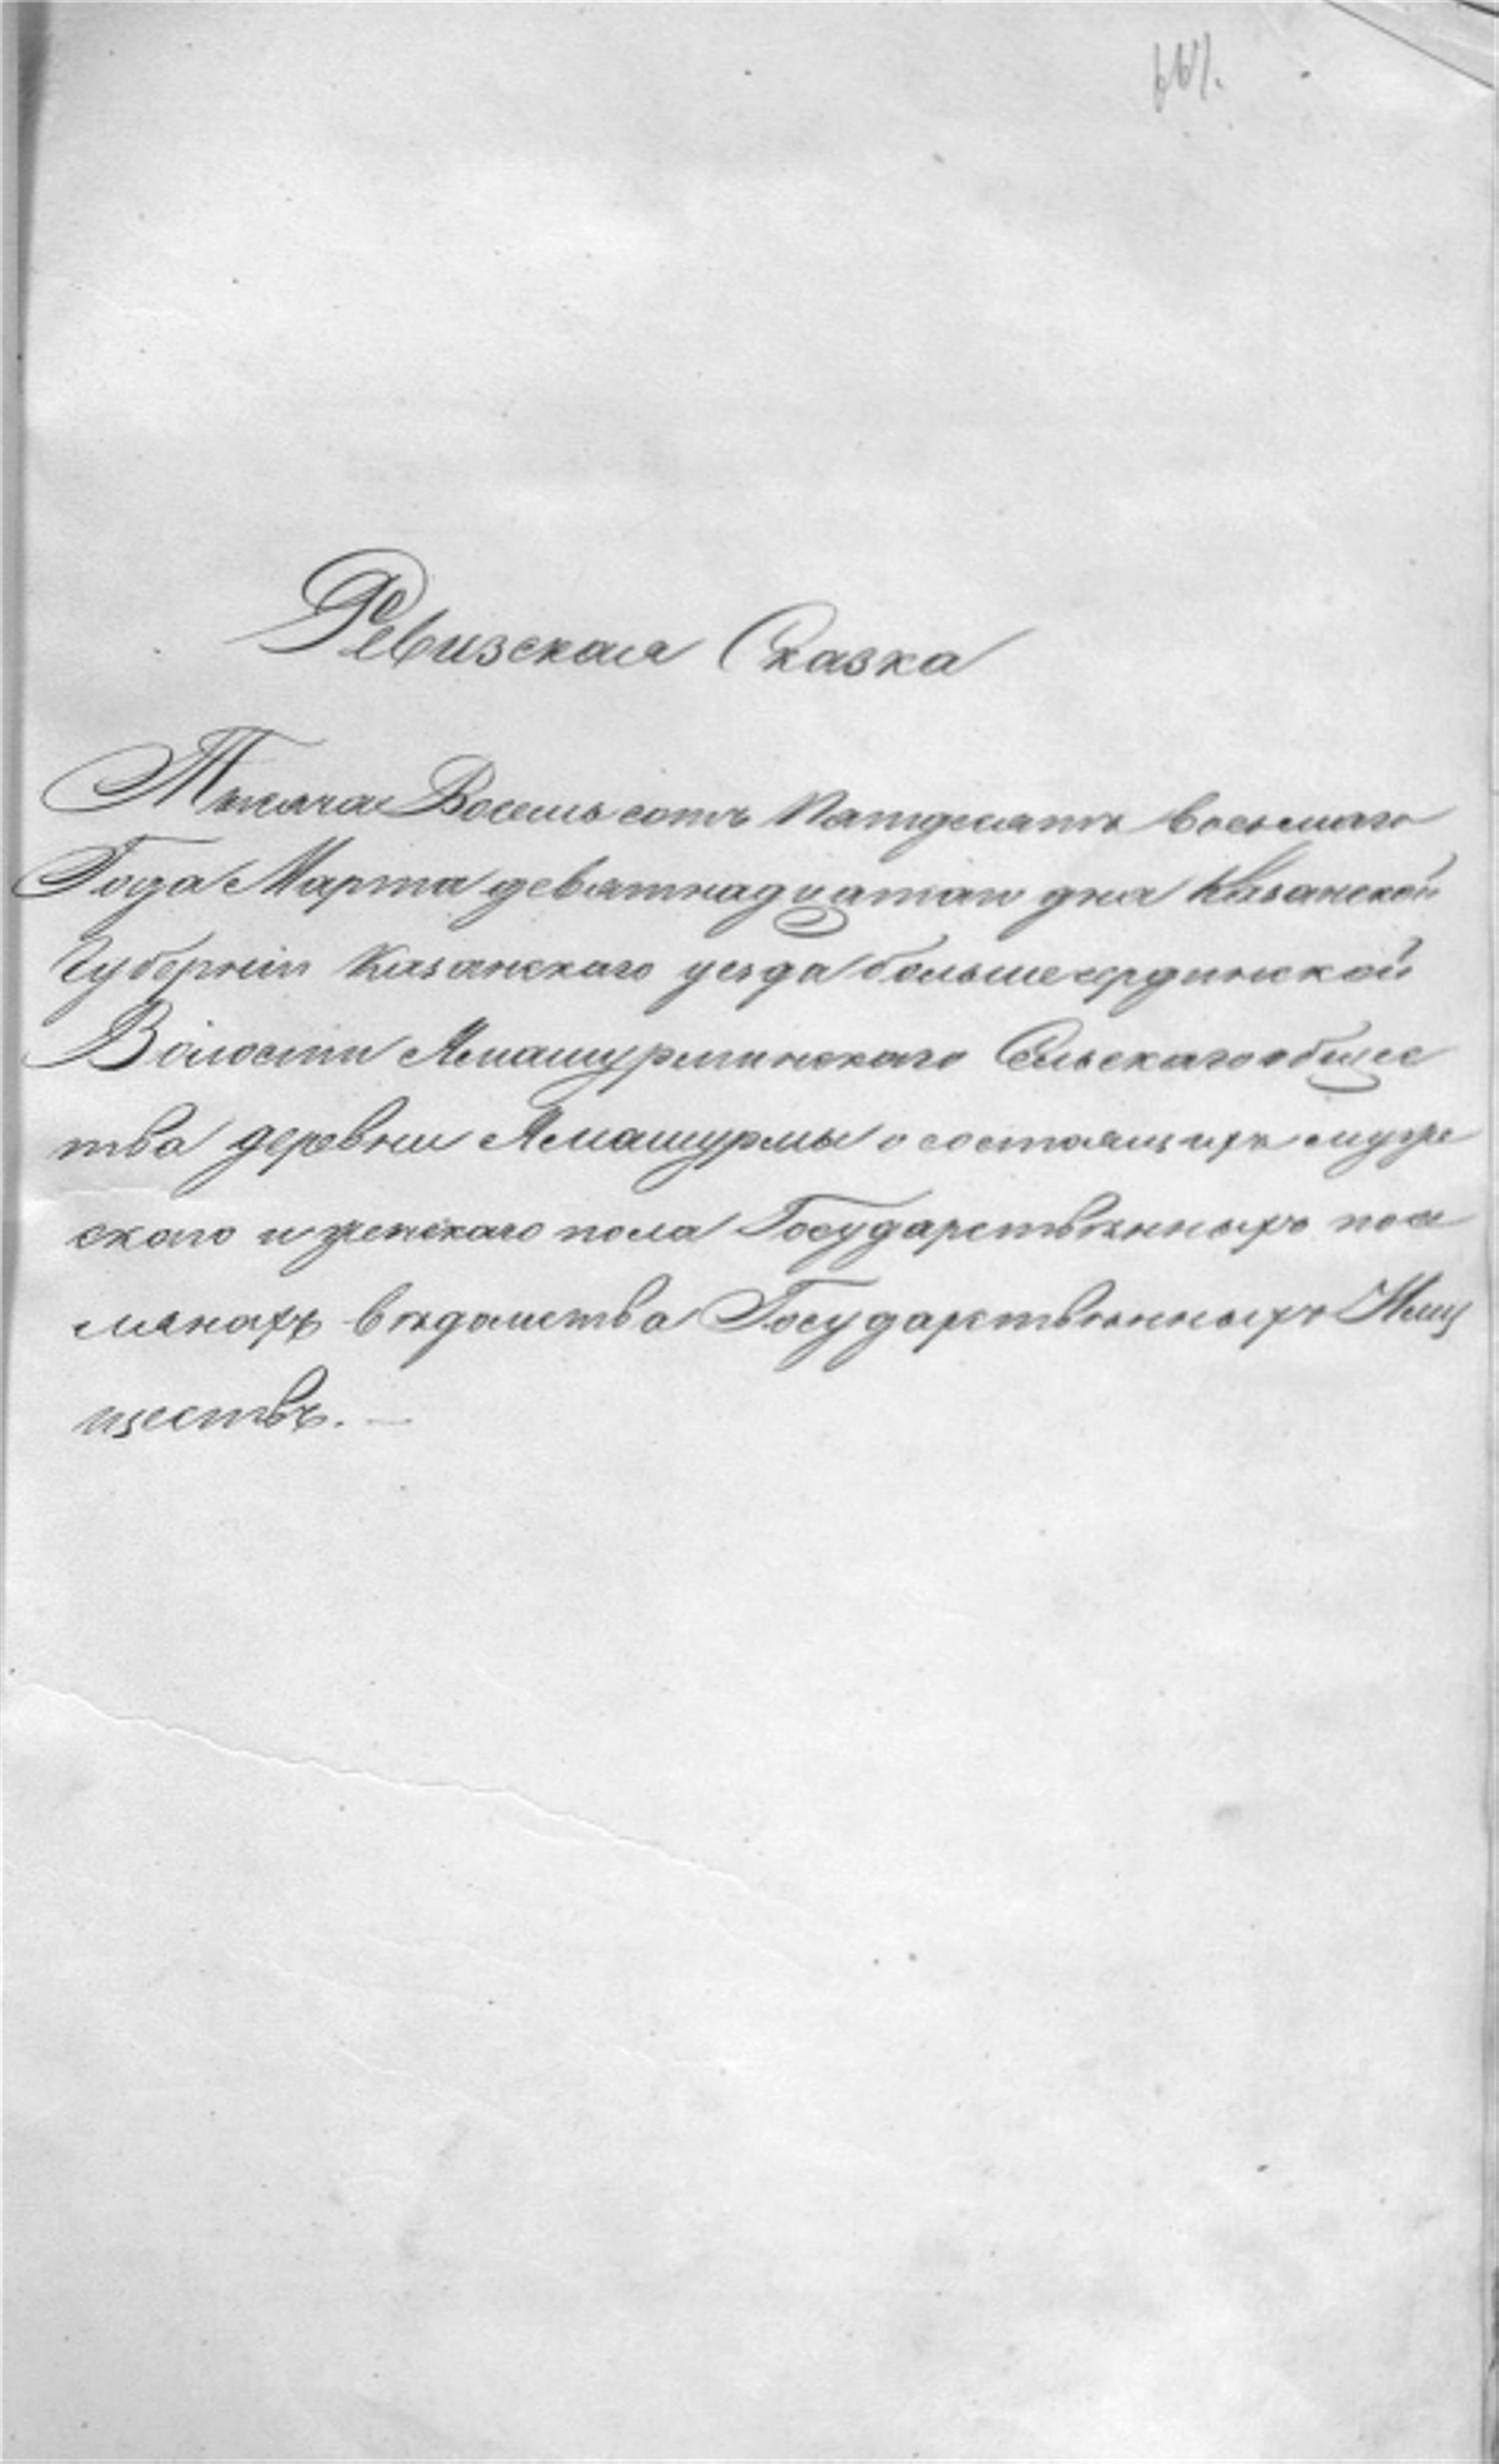 Ревизская Сказка
Тысяча Восемь сотъ Пятдесятъ восьмаго
Года Марта девятнадцатаго дня Казанской
Губерніи Казанскаго уезда большесердинской
Волости Ямашурминскаго Сельскаго общес
тва деревни Ямашурмы о состоящихъ муже
скаго и женскаго пола Государственныхъ посе
лянахъ вѣдомства Государственныхъ Иму
ществъ. —